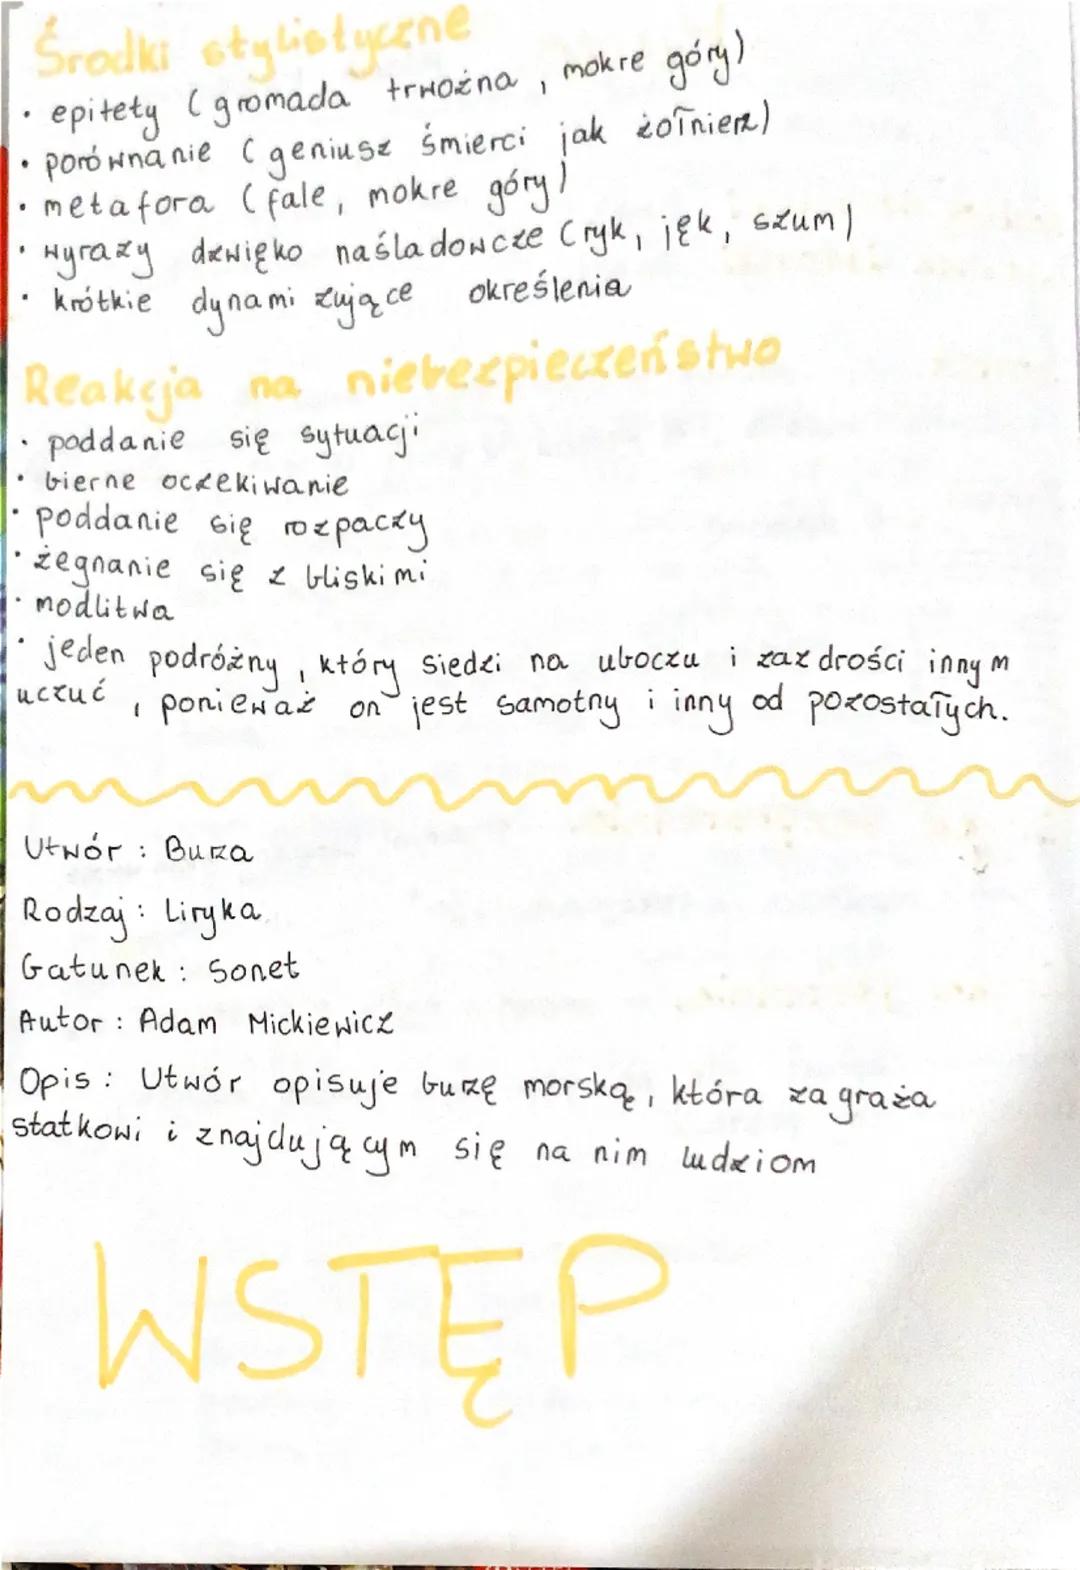 Środki stylistyczne
• epitety (gromada trwożna, mokre góry)
• porównanie (geniusz śmierci jak żołnierz)
• metafora (fale, mokre góry)
• wyrazy dzwięko naśladowcze (ryk, jęk, szum)
• krótkie dynamizujące określenia
Reakcja na niebezpieczeństwo
• poddanie się sytuacji
• bierne oczekiwanie
• poddanie się rozpaczy
• żegnanie się z bliskimi
• modlitwa
• jeden podróżny, który siedzi na uboczu i zazdrości innym
uczuć, ponieważ on jest samotny i inny od pozostałych.
Utwór: Burza
Rodzaj: Liryka
Gatunek: Sonet
Autor: Adam Mickiewicz
Opis: Utwór opisuje burzę morską, która zagraża
statkowi i znajdującym się na nim ludziom
WSTĘP